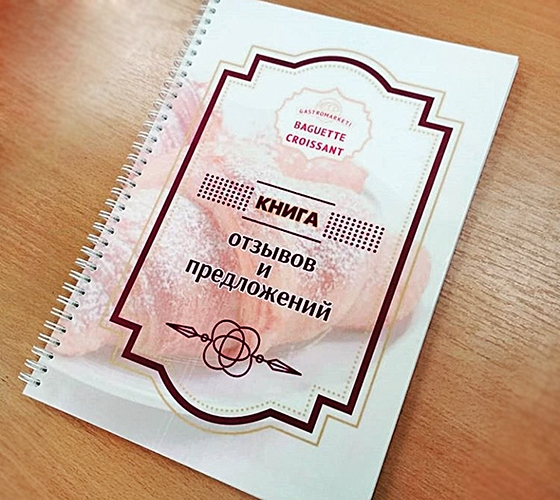 GASTROMARKETI
BAGUETTE
CROISSANT
КНИГА
отзывов
и
предложений